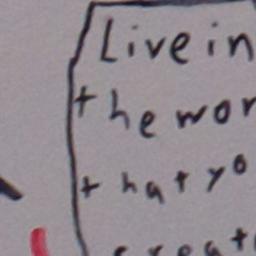 Live in
the wor
that yo
creat